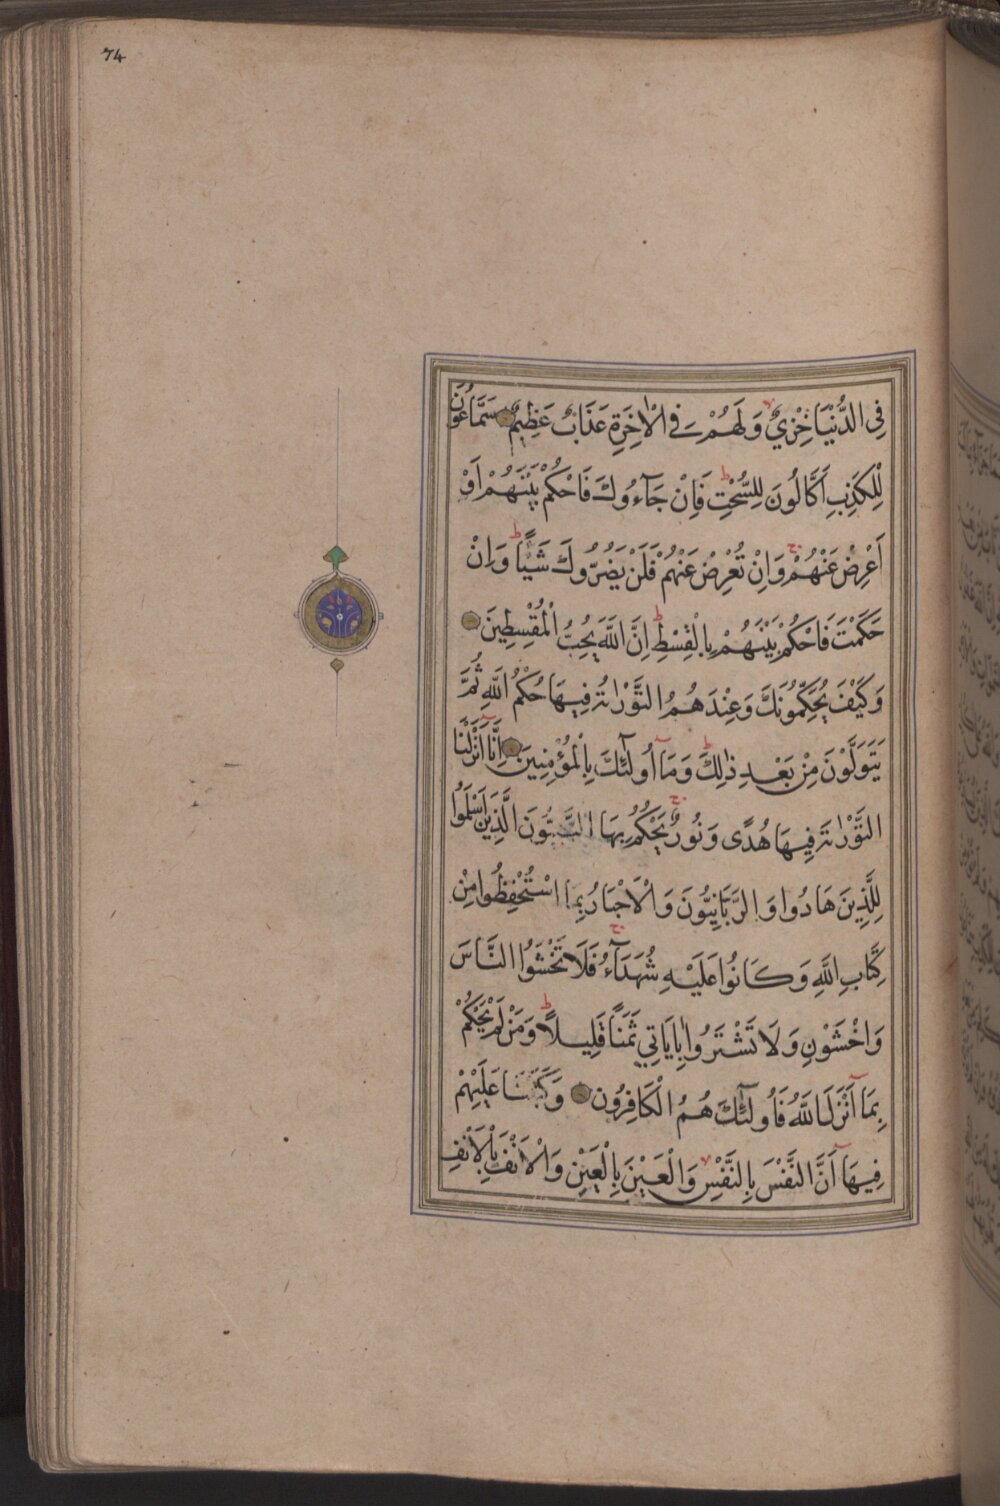 74
فِي الدُّنْيَا خِزْيٌ وَلَهُمْ فِي الْاٰخِرَةِ عَذَابٌ عَظِيمٌ سَمَّاعُونَ
لِلْكَذِبِ اَكَّالُونَ لِلسُّحْتِ فَاِنْ جَآءُوكَ فَاحْكُمْ بَيْنَهُمْ اَوْ
اَعْرِضْ عَنْهُمْ وَاِنْ تُعْرِضْ عَنْهُمْ فَلَنْ يَضُرُّوكَ شَيْئًا وَاِنْ
حَكَمْتَ فَاحْكُمْ بَيْنَهُمْ بِالْقِسْطِ اِنَّ اللّٰهَ يُحِبُّ الْمُقْسِطِينَ
وَكَيْفَ يُحَكِّمُونَكَ وَعِنْدَهُمُ التَّوْرٰىةُ فِيهَا حُكْمُ اللّٰهِ ثُمَّ
يَتَوَلَّوْنَ مِنْ بَعْدِ ذٰلِكَ وَمَآ اُولٰٓئِكَ بِالْمُؤْمِنِينَ اِنَّآ اَنْزَلْنَا
التَّوْرٰىةَ فِيهَا هُدًى وَنُورٌ يَحْكُمُ بِهَا النَّبِيُّونَ الَّذِينَ اَسْلَمُوا
لِلَّذِينَ هَادُوا وَالرَّبَّانِيُّونَ وَالْاَحْبَارُ بِمَا اسْتُحْفِظُوا مِنْ
كِتَابِ اللّٰهِ وَكَانُوا عَلَيْهِ شُهَدَآءَ فَلَا تَخْشَوُا النَّاسَ
وَاخْشَوْنِ وَلَا تَشْتَرُوا بِاٰيَاتِي ثَمَنًا قَلِيلًا وَمَنْ لَمْ يَحْكُمْ
بِمَآ اَنْزَلَ اللّٰهُ فَاُولٰٓئِكَ هُمُ الْكَافِرُونَ وَكَتَبْنَا عَلَيْهِمْ
فِيهَآ اَنَّ النَّفْسَ بِالنَّفْسِ وَالْعَيْنَ بِالْعَيْنِ وَالْاَنْفَ بِالْاَنْفِ